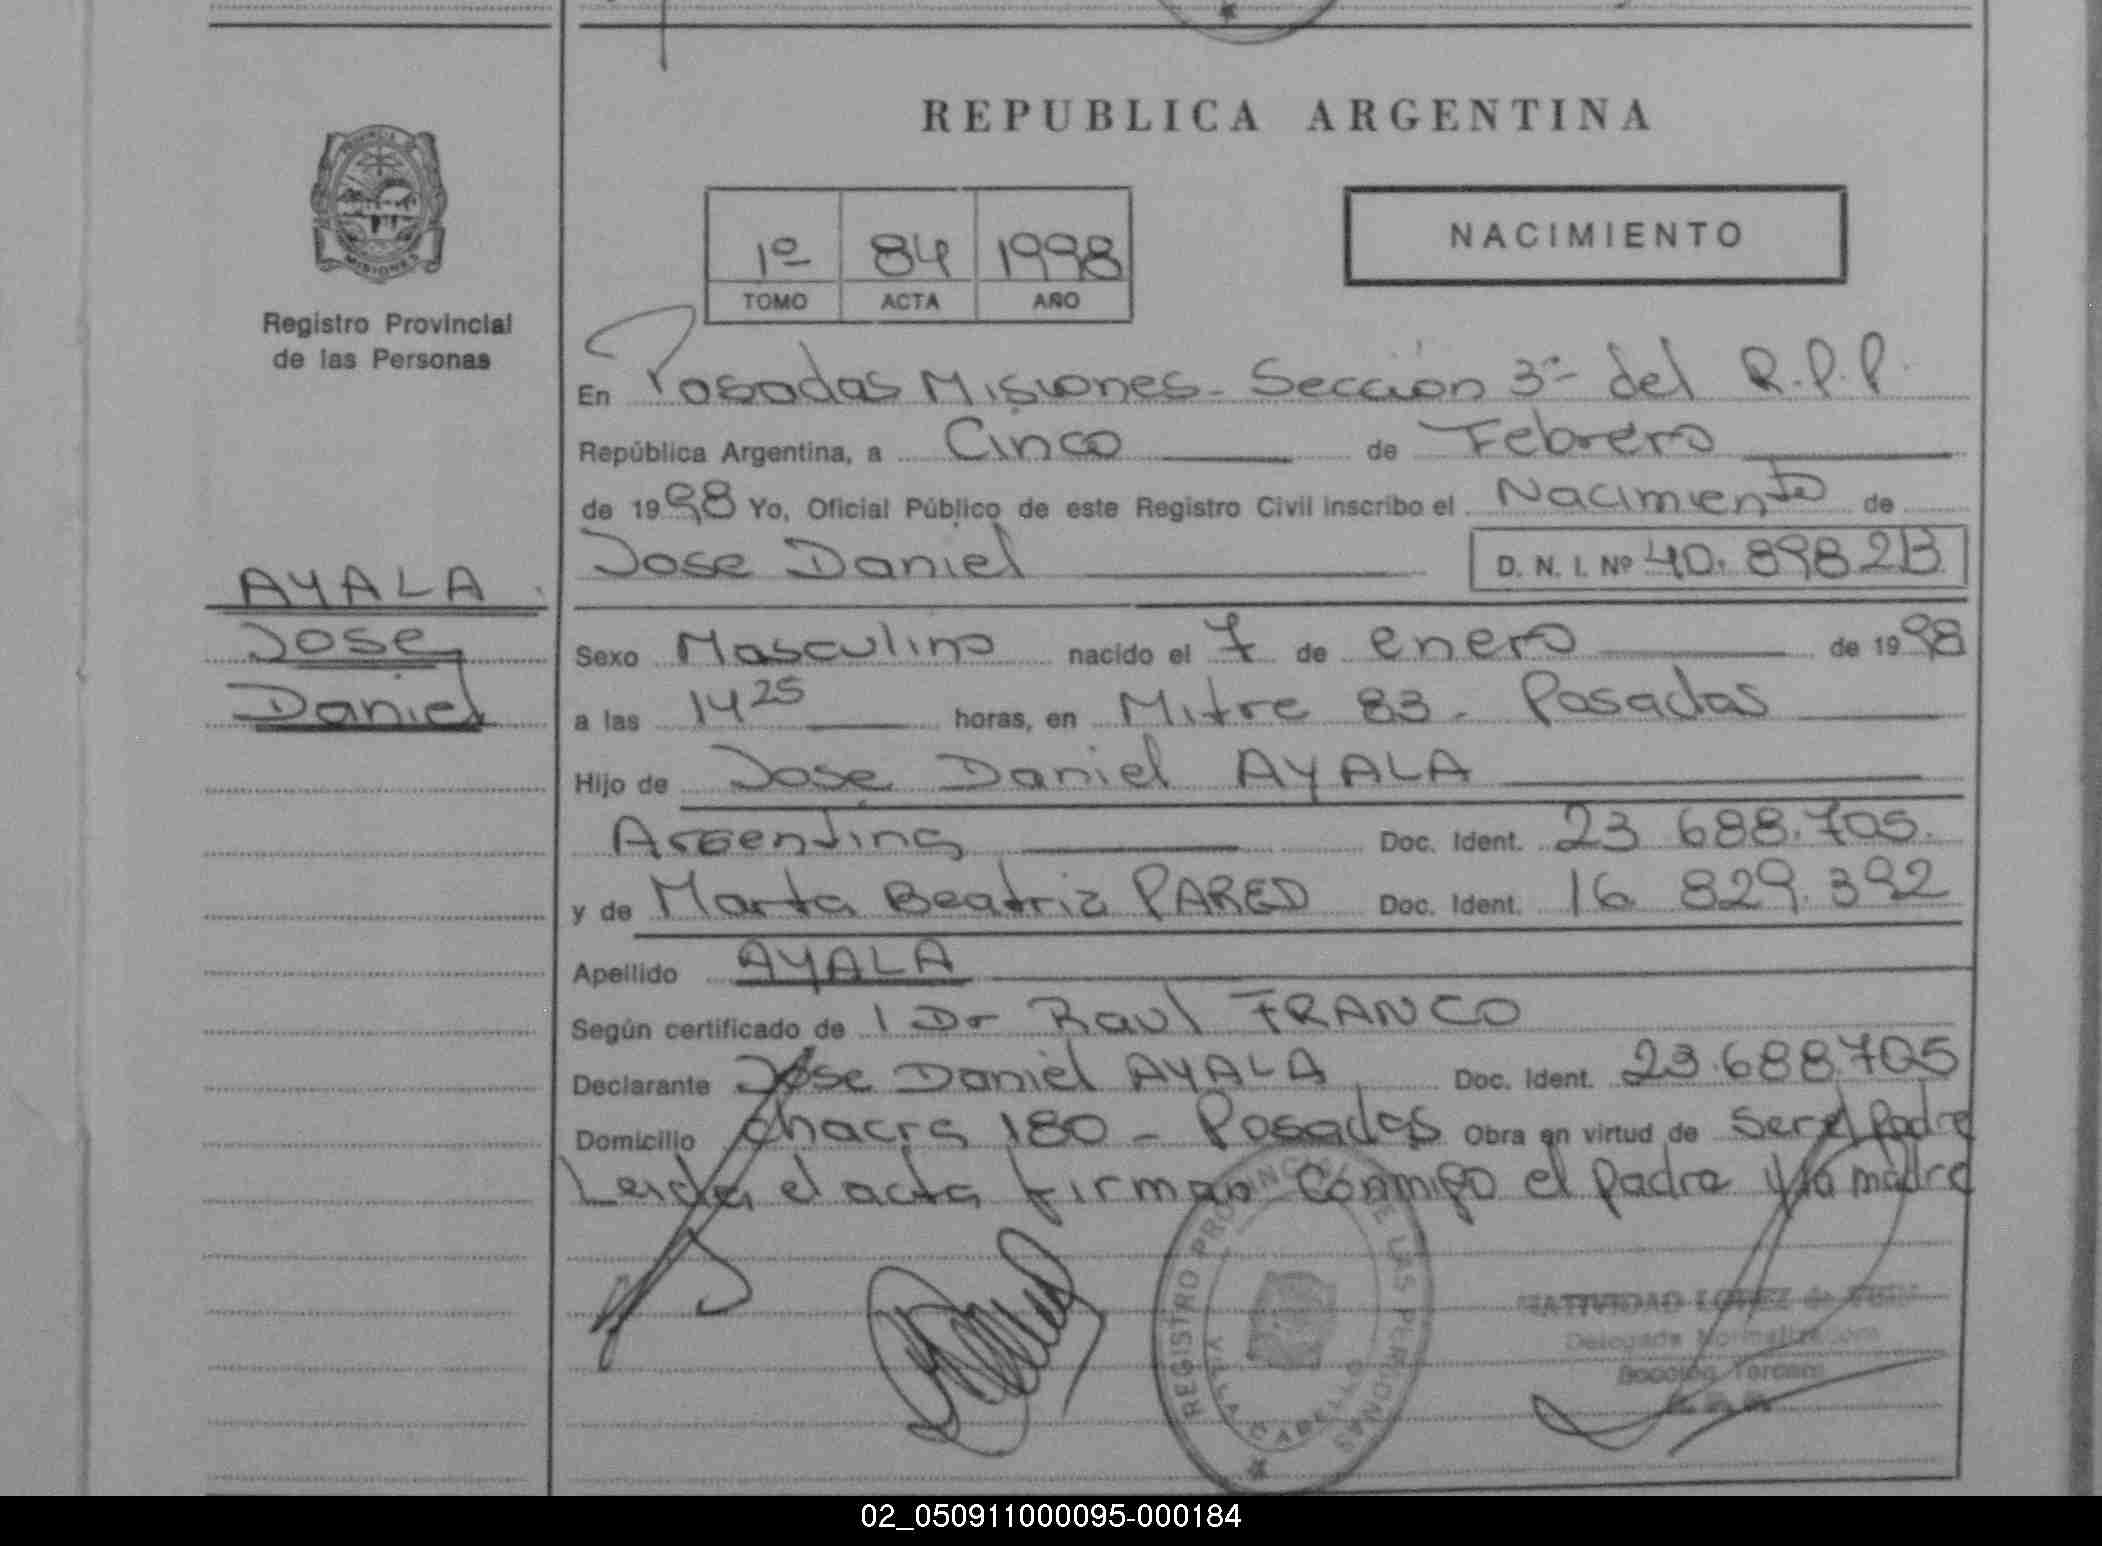 REPUBLICA ARGENTINA
PROVINCIA
MISIONES
Registro Provincial
de las Personas
1º 84 1998
TOMO ACTA AÑO
NACIMIENTO
En Posadas Misiones - Sección 3ª del R.P.P.
República Argentina, a Cinco de Febrero
de 1998 Yo, Oficial Público de este Registro Civil inscribo el Nacimiento de
Jose Daniel D. N. I. Nº 40.898213
AYALA
Jose
Daniel
Sexo Masculino nacido el 7 de enero de 1998
a las 14 25 horas, en Mitre 83 - Posadas
Hijo de Jose Daniel AYALA
Argentina Doc. Ident. 23 688.705.
y de Marta Beatriz PARED Doc. Ident. 16. 829.392
Apellido AYALA
Según certificado de Dr Raul FRANCO
Declarante Jose Daniel AYALA Doc. Ident. 23.688.705
Domicilio chacra 180 - Posadas Obra en virtud de ser el padre
Leida el acta firman conmigo el padre y la madre
REGISTRO PROVINCIAL DE LAS PERSONAS
VILLA CABELLO
NATIVIDAD LOPEZ de
Delegada Normalizadora
Sección Tercera
02_050911000095-000184